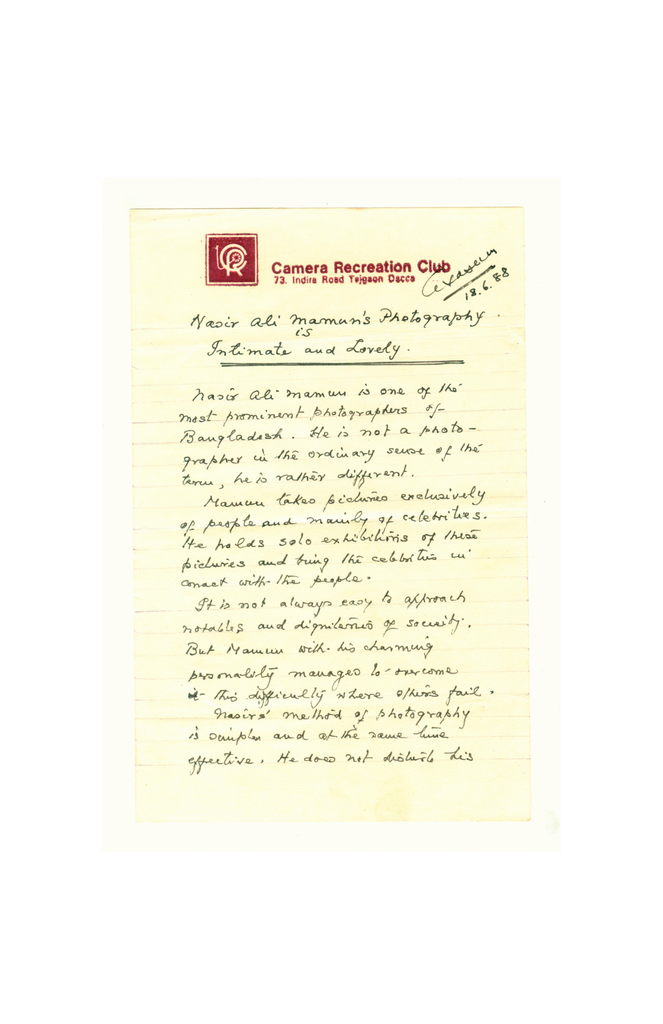 Camera Recreation Club
73. Indira Road Tejgaon Dacca
18.6.88
Nasir Ali Mamun's Photography.
is
Intimate and Lovely.
Nasir Ali Mamun is one of the
most prominent photographers of
Bangladesh. He is not a photo-
grapher in the ordinary sense of the
term, he is rather different.
Mamun takes pictures exclusively
of people and mainly of celebrities.
He holds solo exhibitions of these
pictures and bring the celebrities in
conact with the people.
It is not always easy to approach
notables and dignitaries of society.
But Mamun with his charming
personality manages to overcome
this difficulty where others fail.
Nasirs' method of photography
is simple and at the same time
effective. He does not disturb his